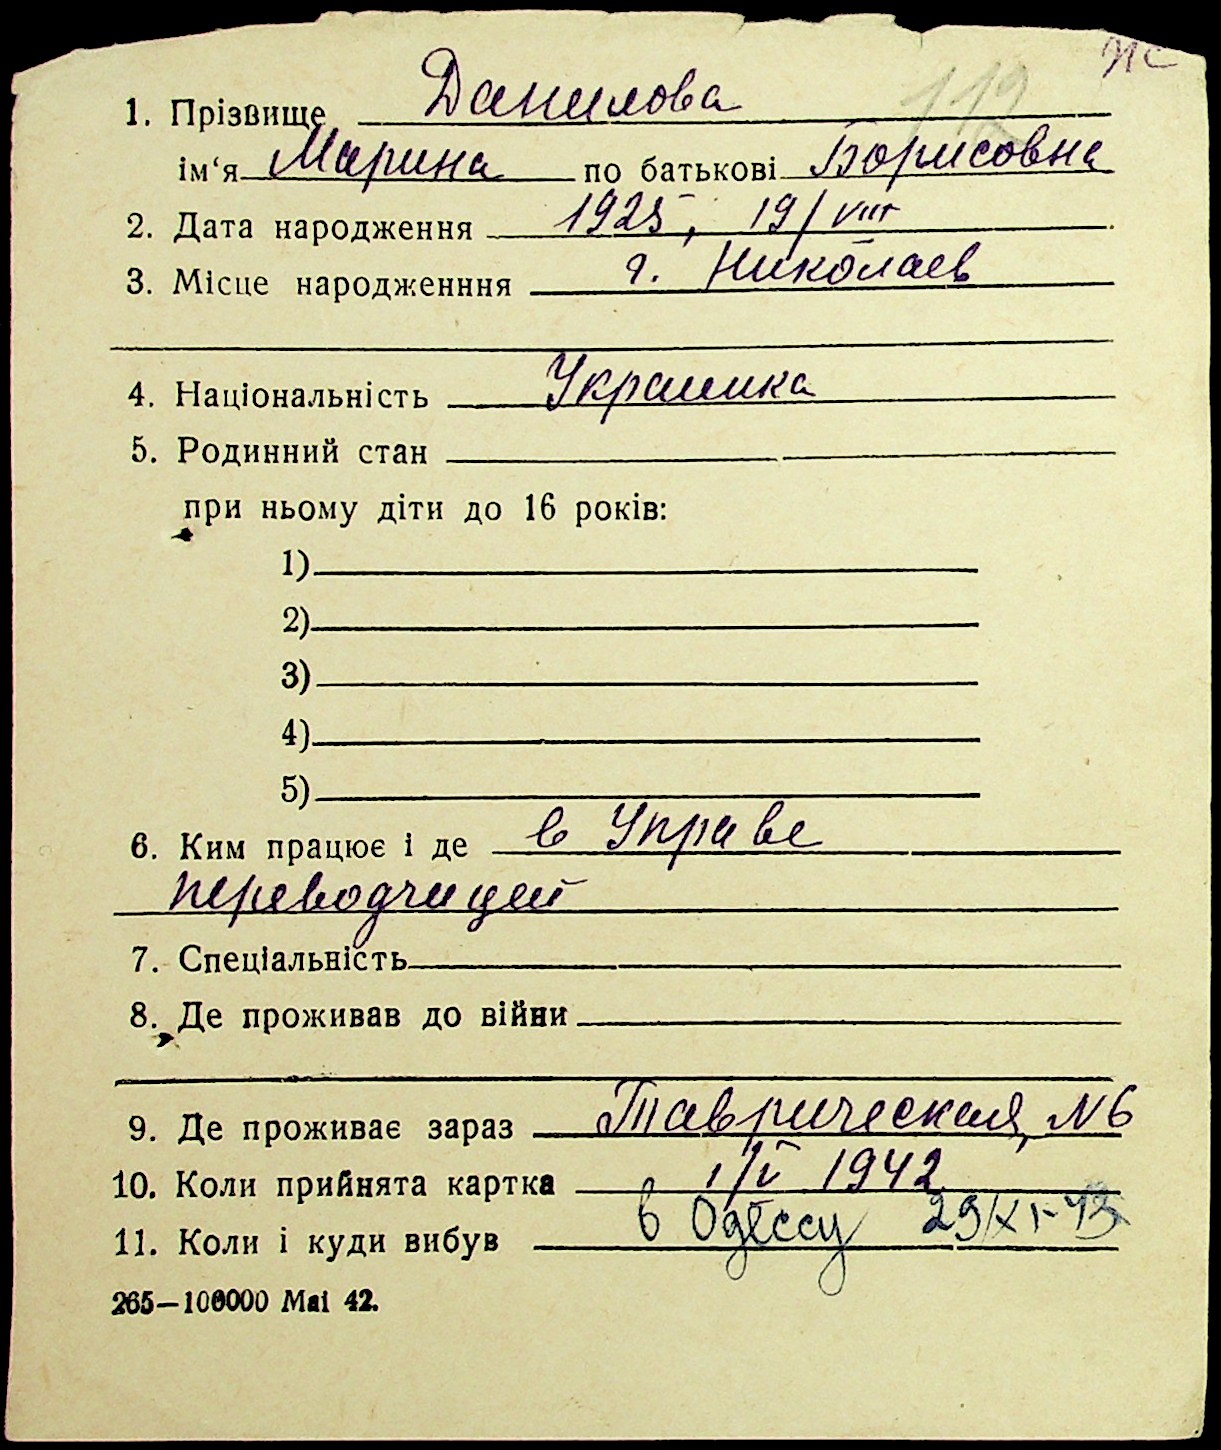 ЛС
112
1. Прізвище Данилова
ім‘я Марина по батькові Борисовна
2. Дата народження 1925, 19/VIII
3. Місце народженння г. Николаев
4. Національність Украинка
5. Родинний стан
при ньому діти до 16 років:
1)
2)
3)
4)
5)
6. Ким працює і де в Управе
переводчицей
7. Спеціальність
8. Де проживав до війни
9. Де проживає зараз Таврическая, №6
10. Коли прийнята картка 1942
11. Коли і куди вибув в Одессу 29/XI-43
265—100000 Маі 42.